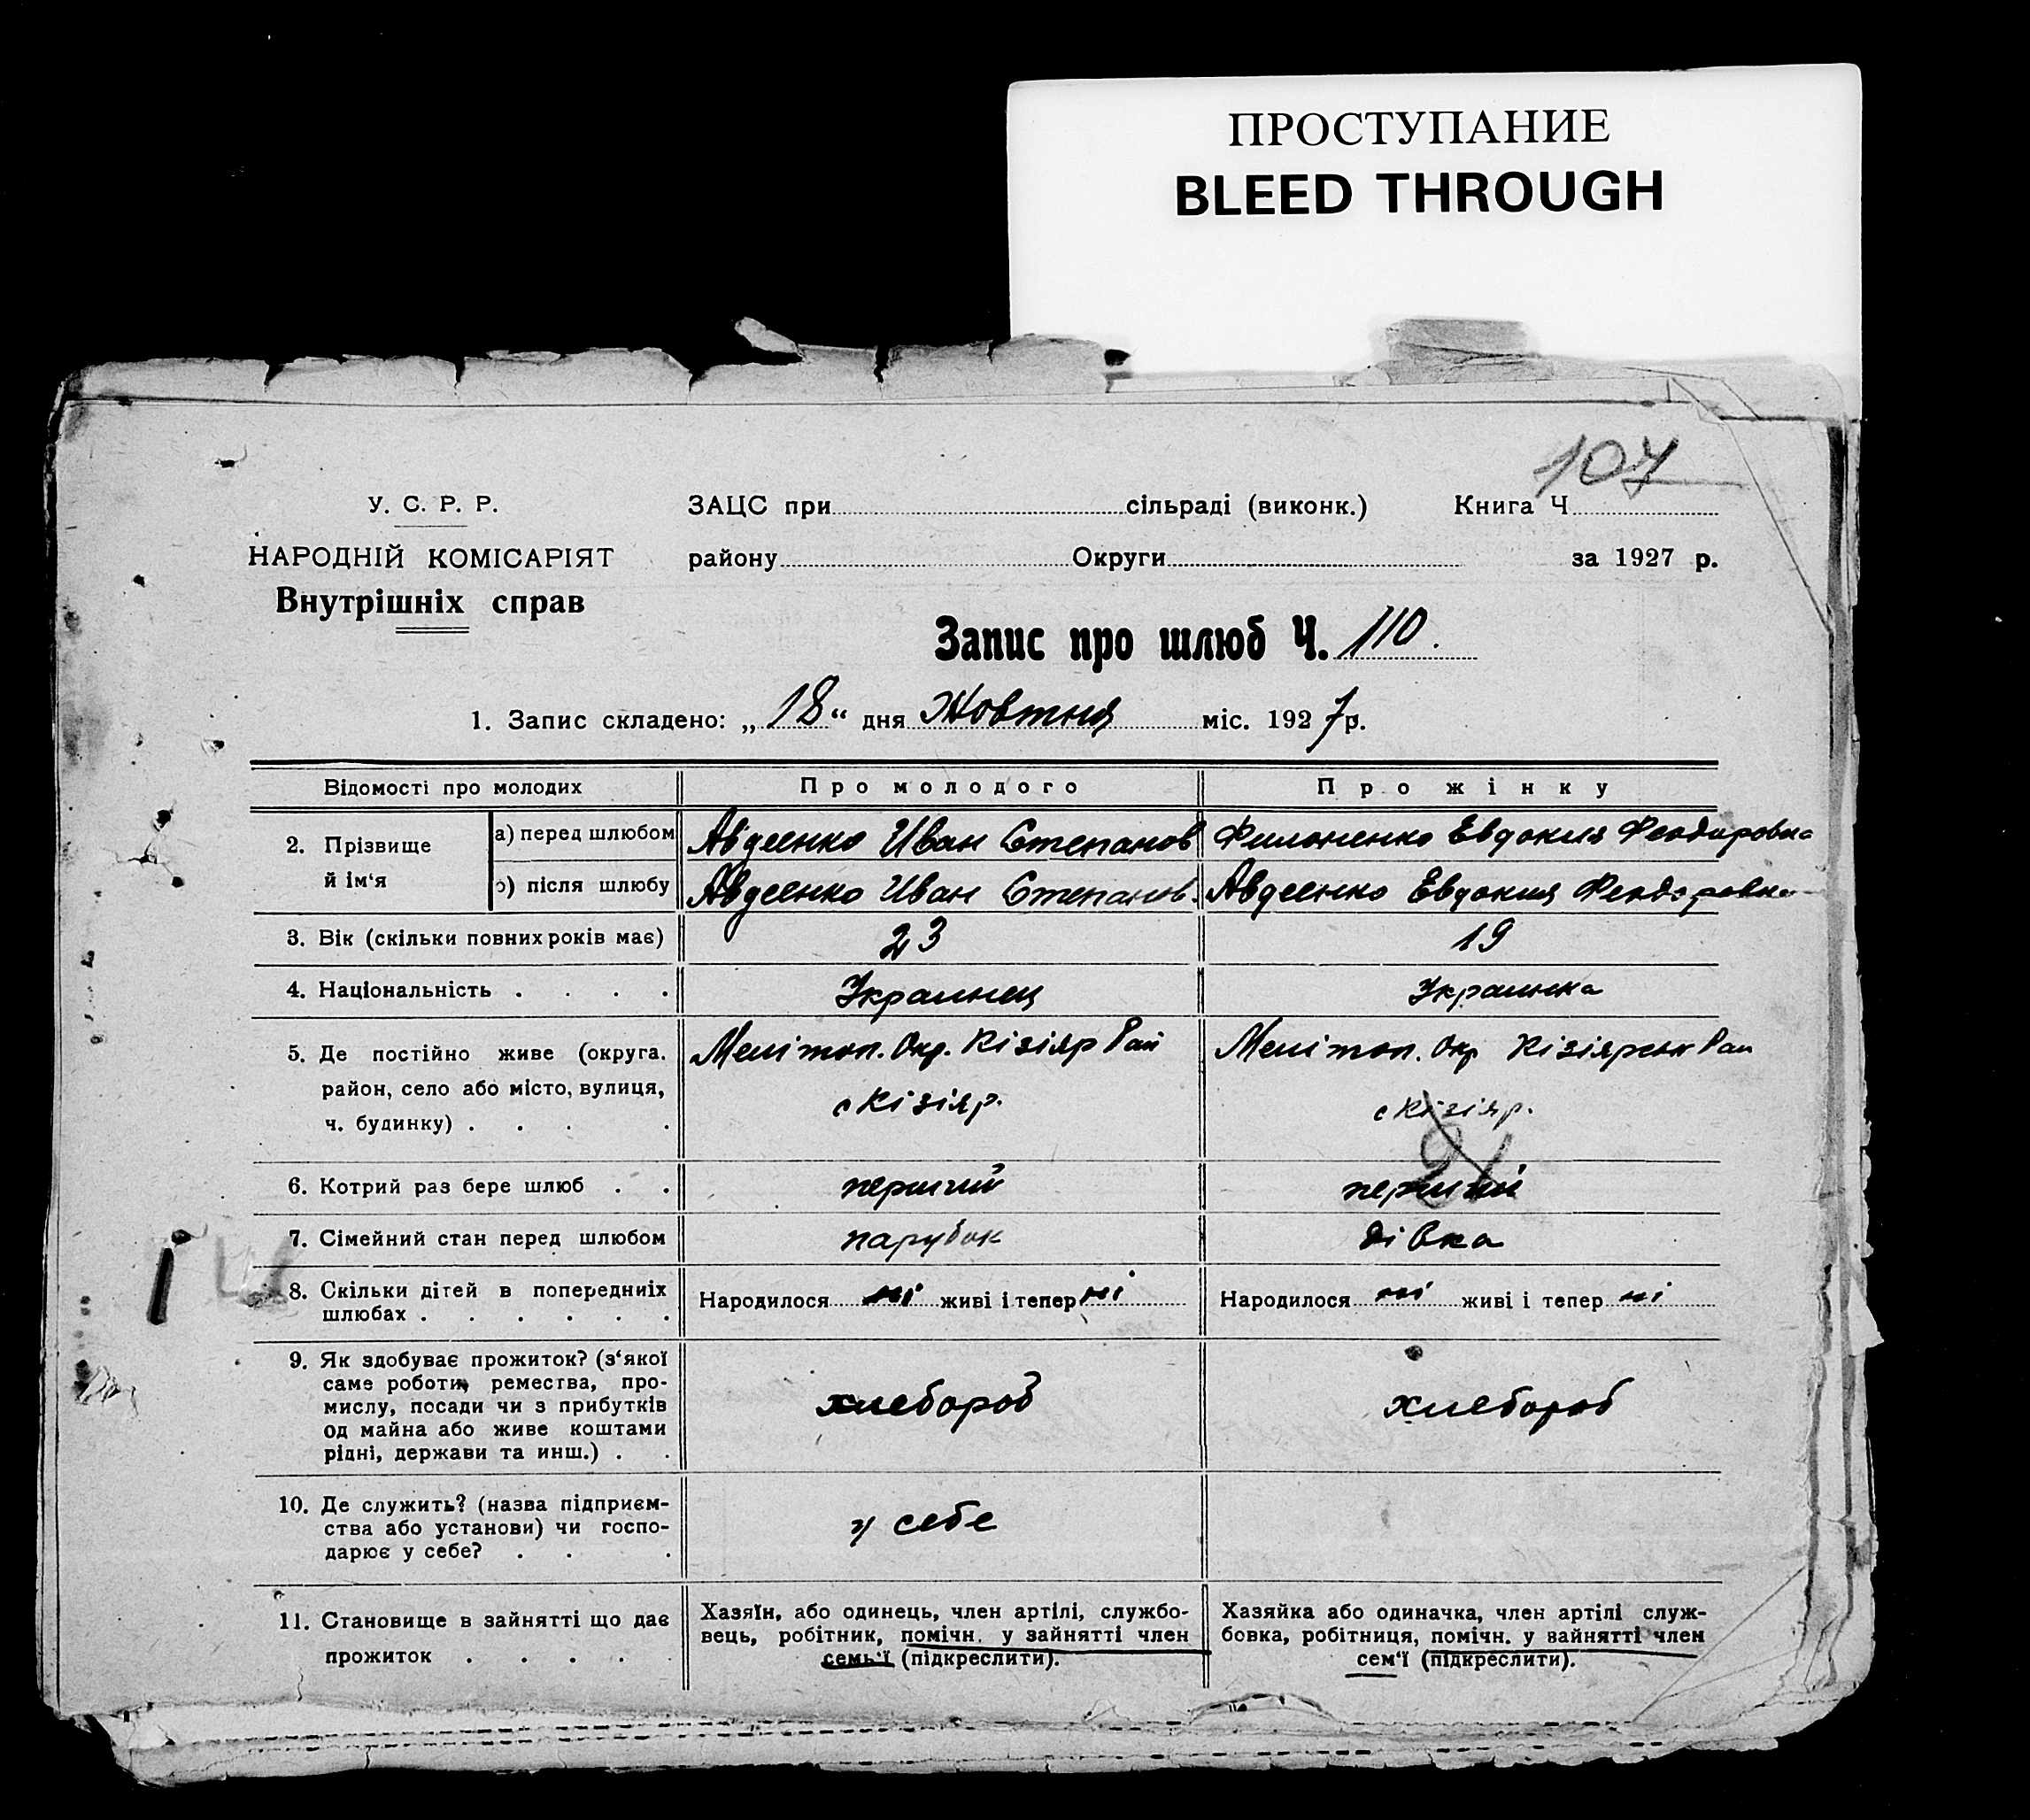 ПРОСТУПАНИЕ
BLEED THROUGH
107
У. С. Р. Р.
НАРОДНІЙ КОМІСАРІЯТ
Внутрішніх справ
ЗАЦС при сільраді (виконк.) Книга Ч
району Округи за 1927 р.
Запис про шлюб Ч. 110.
1. Запис складено: „18“ дня Жовтня міс. 1927 р.
Відомості про молодих Про молодого Про жінку
2. Прізвище й ім‘я
а) перед шлюбом Авдеенко Иван Степанов Филоненко Евдокия Феодоровна
б) після шлюбу Авдеенко Иван Степанов. Авдеенко Евдокия Феодоровна
3. Вік (скільки повних років має) 23 19
4. Національність . . . . Украинец Украинка
5. Де постійно живе (округа, Мелітоп. Окр. Кізіяр Рай Мелітоп. Окр Кізіярськ Рай
район, село або місто, вулиця, с Кізіяр. с Кізіяр.
ч. будинку) . . . .
21
6. Котрий раз бере шлюб . . перший перший
7. Сімейний стан перед шлюбом парубок дівка
8. Скільки дітей в попередниіх
шлюбах . . . . . . Народилося ні живі і тепер ні Народилося ні живі і тепер ні
9. Як здобуває прожиток? (з‘якої
саме роботи, ремества, про-
мислу, посади чи з прибутків хлебороб хлебороб
од майна або живе коштами
рідні, держави та инш.) . .
10. Де служить? (назва підприєм-
ства або установи) чи госпо- у себе
дарює у себе? . . .
11. Становище в зайнятті що дає
прожиток . . . . .
Хазяїн, або одинець, член артілі, службо-
вець, робітник, помічн. у зайнятті член
семь‘ї (підкреслити).
Хазяйка або одиначка, член артілі служ-
бовка, робітниця, помічн. у зайнятті член
сем‘ї (підкреслити).